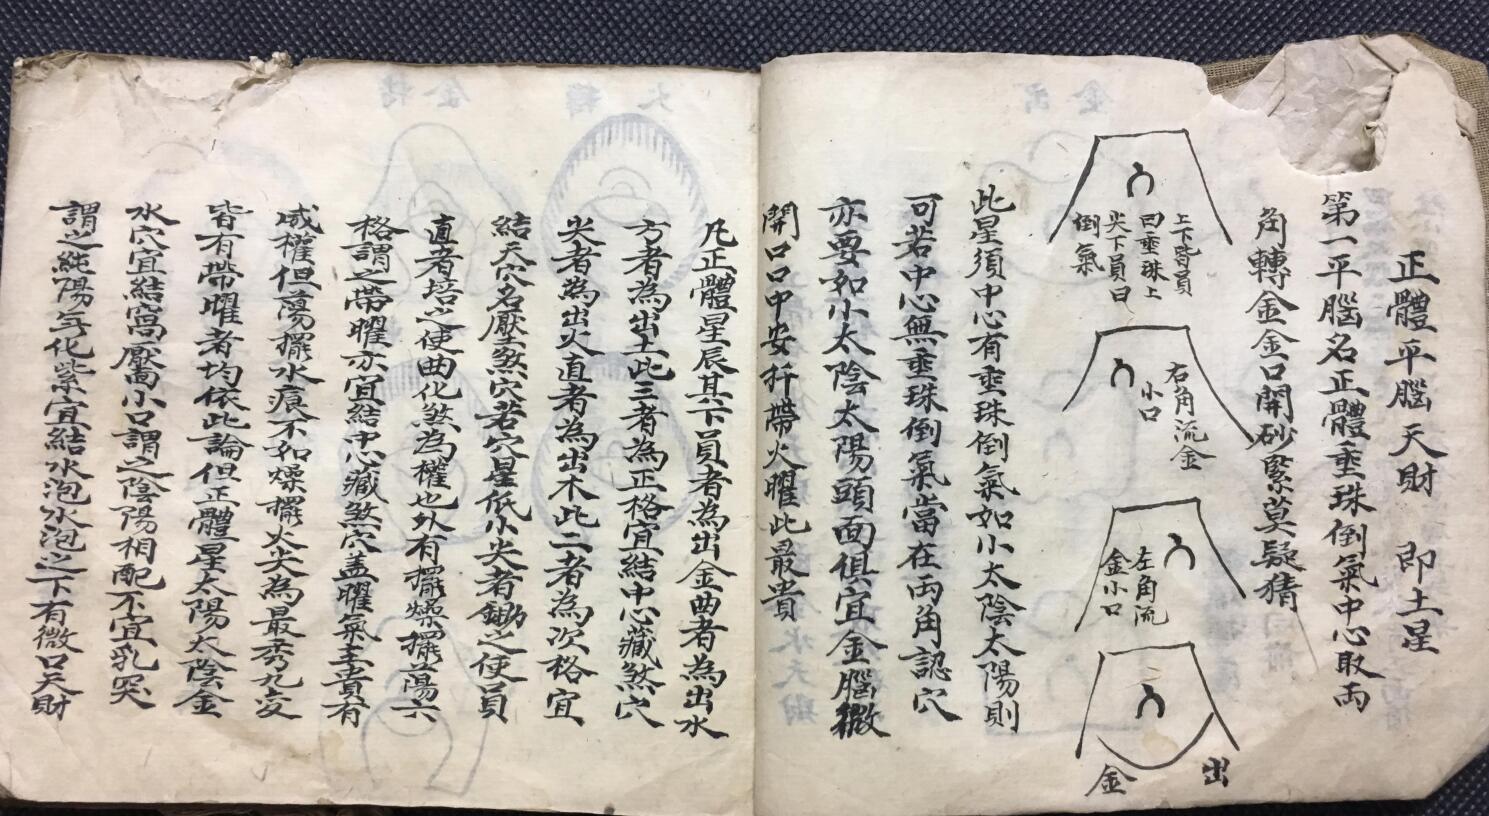 正體平腦天財　即土星
第一平腦名正體垂珠倒氣中心取両
角轉金金口開砂緊莫疑猜
上下皆員
曰垂珠上
尖下員曰
倒氣
右角流金
小口
左角流
金小口
出
金
此星須中心有垂珠倒氣如小太陰太陽則
可若中心無垂珠倒氣當在両角認穴
亦要如小太陰太陽頭面俱宜金腦微
開口口中安扦帶火曜此最貴
凡正體星辰其下員者為出金曲者為出水
方者為出土此三者為正格宜結中心藏煞穴
尖者為出火直者為出木此二者為次格宜
結天穴名壓煞穴若穴星低小尖者鋤之使員
直者培之使曲化煞為權也外有擺燥擺蕩六
格謂之帶曜亦宜結中心藏煞穴盖曜氣主貴有
威權但蕩擺水痕不如燥擺火尖為最秀九变
皆有帶曜者均依此論但正體星太陽太陰金
水穴宜結窩靨啇小口謂之陰陽相配不宜乳突
謂之純陽無化紫宜結水泡水泡之下有微口天財